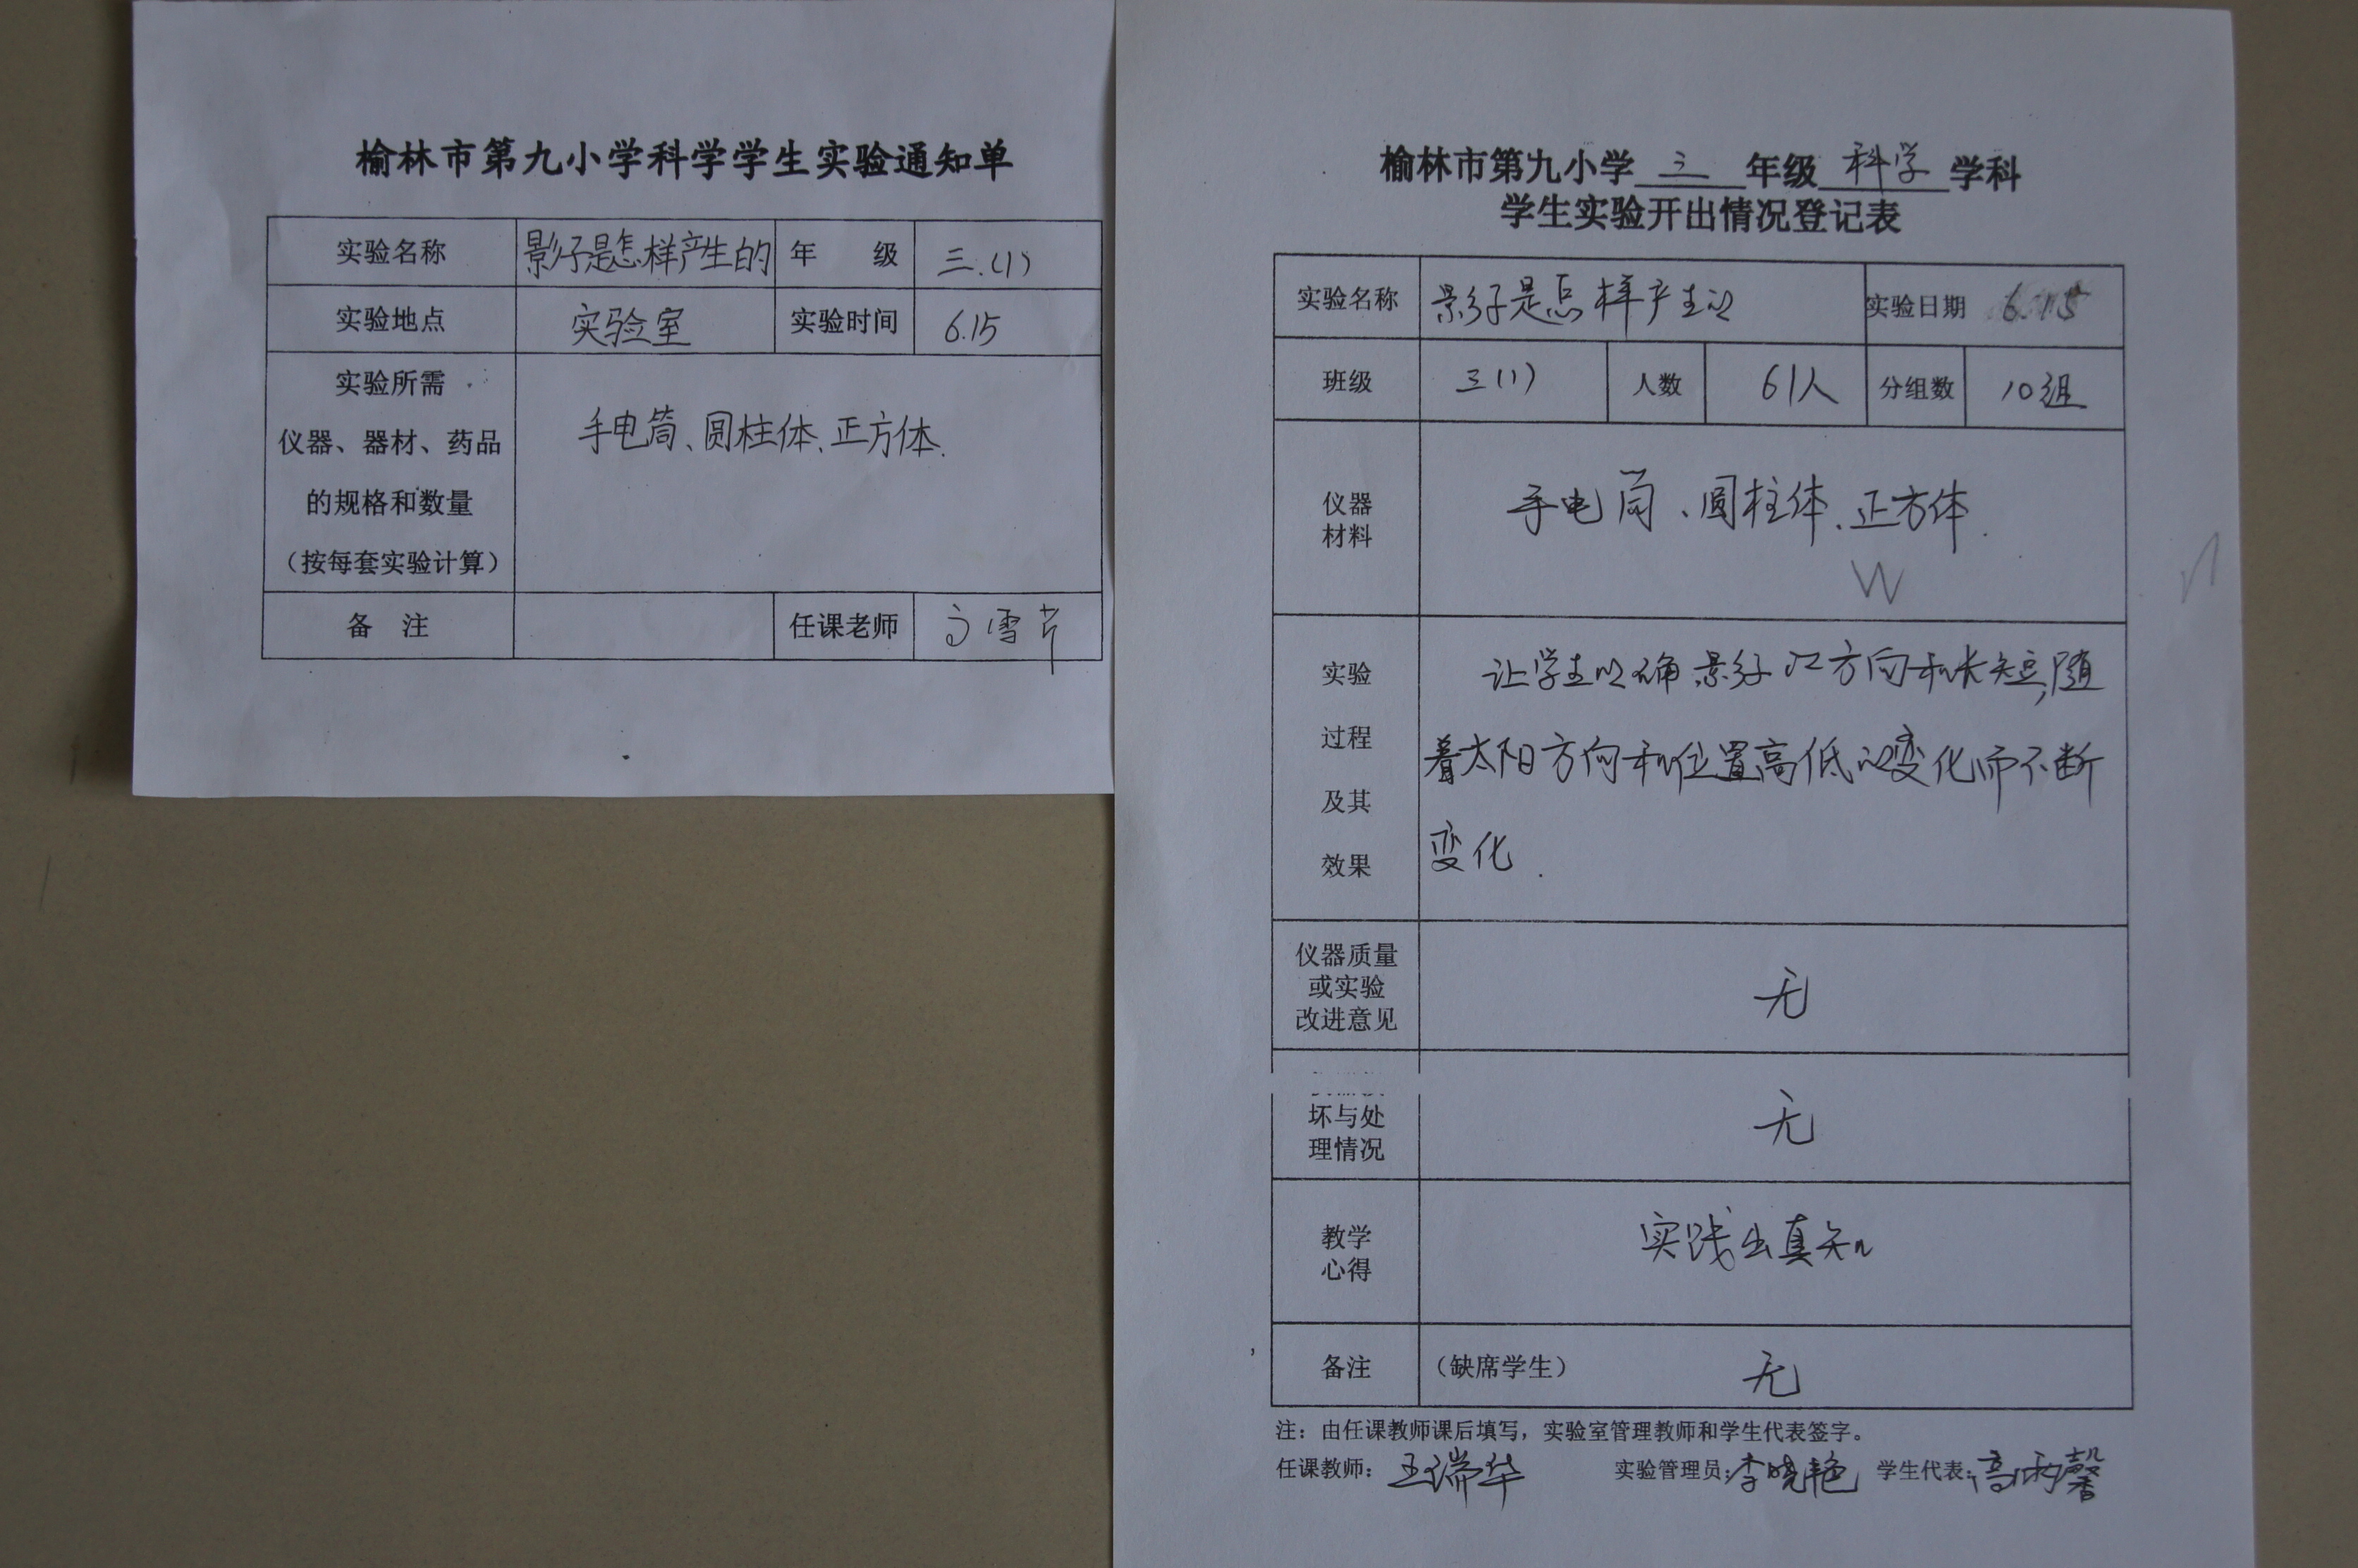 榆林市第九小学科学学生实验通知单
实验名称 影子是怎样产生的 年 级 三.(1)
实验地点 实验室 实验时间 6.15
实验所需
仪器、器材、药品
的规格和数量
（按每套实验计算）
手电筒、圆柱体、正方体.
备 注 任课老师 高雪芹
榆林市第九小学 三 年级 科学 学科
学生实验开出情况登记表
实验名称 影子是怎样产生的 实验日期 6.15
班级 三(1) 人数 61人 分组数 10组
仪器
材料
手电筒、圆柱体、正方体.
W
实验
过程
及其
效果
让学生明确影子的方向和长短,随
着太阳方向和位置高低的变化而不断
变化.
仪器质量
或实验
改进意见
无
坏与处
理情况
无
教学
心得
实践出真知
备注 （缺席学生） 无
注：由任课教师课后填写，实验室管理教师和学生代表签字。
任课教师：王瑞华 实验管理员：李晓艳 学生代表：高雨馨